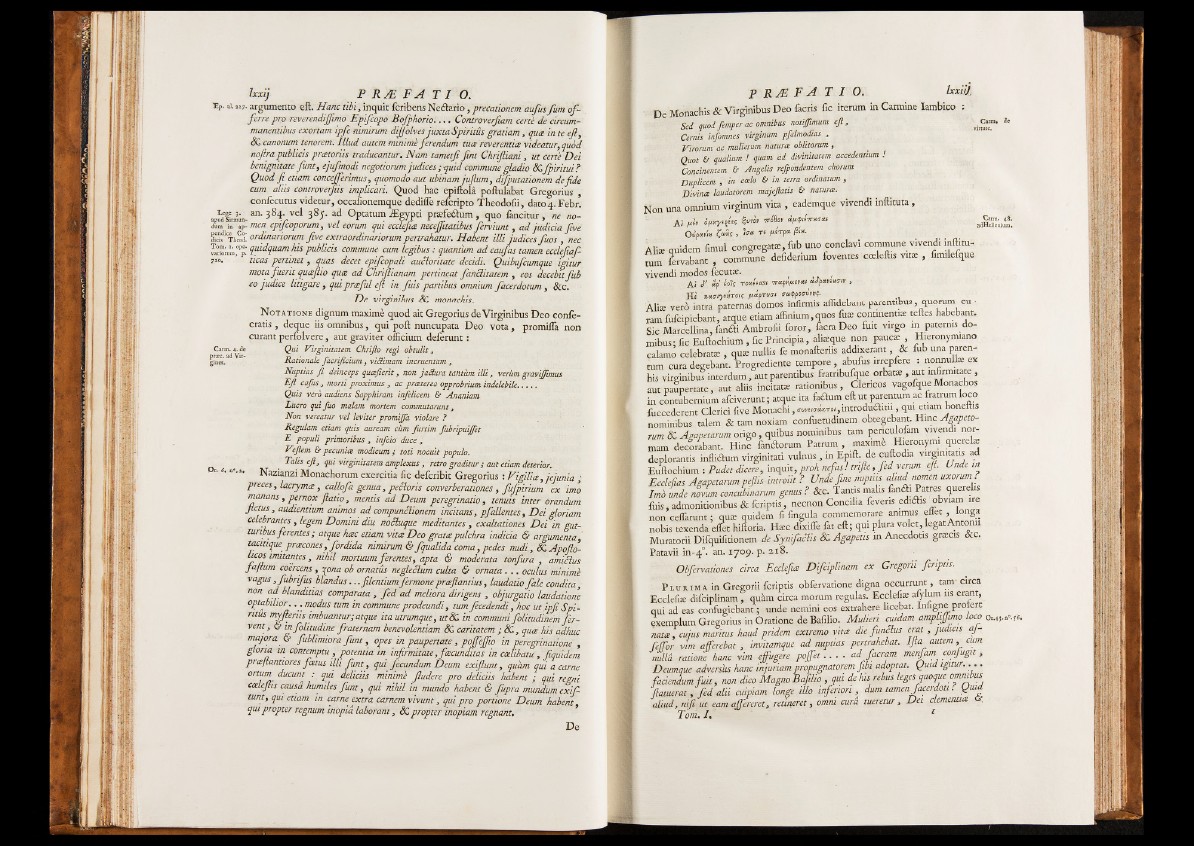 lxxij PRÆFATIO.
Ep. al. 227. argumento est. Hanc tibi, inquit scribens Nectario, precationem ausus sum of-
ferre pro reverendissimo Episcopo Bosphorio.... Controversiam certè de circum-
manentibus exortam ipse nimirum dissolves juxta Spiritûs gratiam, quæ in te est,
& canonum tenorem. Illud autem minimè ferendum tua reverentia videatur, quòd
nostra publicis prætoriis traducantur. Nam tametsi sint Christiani, ut certè Dei
benignitate sunt, ejusmodi negotiorum judices; quid commune gladio & spiritui?
Quod si etiam concesserimus, quomodo aut ubinam justum, disputationem de fide
cum aliis controversiis implicari. Quod hac epistolâ postulabat Gregorius,
consecutus videtur, occasionemque dedisse rescripto Theodosii, dato 4. Febr.
an. 384. vel 385. ad Optatum Ægypti præfectum, quo sancitur, ne no-
men episcoporum, vel eorum qui ecclesiæ necessitatibus serviunt, ad judicia sive
ordinariorum sive extraordinariorum pertrahatur. Habent illi judices suos, nec
quidquam his publicis commune cum legibus: quantùm ad causas tamen ecclesias-
ticas pertinet, quas decet episcopali auctoritate decidi. Quibuscumque igitur
mota fuerit quæstio quæ ad Christianam pertineat sanctitatem, eos decebit sub
eo judice litigare, qui præsul est in suis partibus omnium sacerdotum, &c.
Lege 3.
apud Sirmun-
dum in ap-
pendice Co-
dicis Theod.
Tom. 1. ope-
variorum, p.
720.
De virginibus & monachis.
NOTATIONE dignum maximè quod ait Gregorius de Virginibus Deo conse-
cratis, deque iis omnibus, qui post nuncupata Deo vota, promissa non
curant persolvere, aut graviter officium deserunt:
Carm. 2. de
præc. ad Vir-
gines.
Qui Virginitatem Christo regi obtulit,
Rationale sacrificium, victimam incruentam,
Nuptias si deinceps asciscerit, non jactura tantùm illi, verùm gravissimus
Est casus, morti proximus, ac præterea opprobrium indelebile.....
Quis verò audiens Sapphiram infelicem & Ananiam
Lucro qui suo malam mortem commutarunt,
Non vereatur vel leviter promissa violare?
Regulam etiam quis auream cùm furtim subripuisset
E populi primoribus, inscio duce,
Vestem & pecuniæ modicum; toti nocuit populo.
Talis est, qui virginitatem amplexus, retro graditur; aut etiam deterior.
Or. 6. n°. 2. Nazianzi Monachorum exercitia sic describit Gregorius: Vigiliæ, jejunia;
preces, lacrymæ, callosa genua, pectoris converberationes, suspirium ex imo
manans, pernox statio, mentis ad Deum peregrinatio, tenuis inter orandum
fletus, audientium animos ad compunctionem incitans, psallentes, Dei gloriam
celebrantes, legem Domini diu noctuque meditantes, exaltationes Dei in gut-
turibus ferentes; atque hæc etiam vitæ Deo gratæ pulchra indicia & argumenta,
tacitique præcones, sordida nimirum & squalida coma, pedes nudi, & Aposto-
licos imitantes, nihil mortuum ferentes, apta & moderata tonsura, amictus
fastum coërcens, zona ob ornatûs neglectum culta & ornata... oculus minimè
vagus, subrisus blandus... silentium sermone præstantius, laudatio sale condita,
non ad blanditias comparata, sed ad meliora dirigens, objurgatio laudatione
optabilior... modus tum in commune prodeundi, tum secedendi, hoc ut ipsi Spi-
ritûs mysteriis imbuantur; atque ita utrumque, ut & in communi solitudinem ser-
vent, & in solitudine fraternam benevolentiam & caritatem; &, quæ his adhuc
majora & sublimiora sunt, opes in paupertate, possessio in peregrinatione,
gloria in contemptu, potentia in infirmitate, fœcunditas in cœlibatu, siquidem
præstantiores fœtus illi sunt, qui secundum Deum existunt, quàm qui a carne
ortum ducunt: qui deliciis minimè studere pro deliciis habent; qui regni
cœlestis causâ humiles sunt, qui nihil in mundo habent & supra mundum exis-
tunt, qui etiam in carne extra carnem vivunt, qui pro portione Deum habent,
qui propter regnum inopiâ laborant, & propter inopiam regnant.
De
PRÆFATIO. lxxiij
De Monachis & Virginibus Deo sacris sic iterum in Carmine Iambico:
Sed quod semper ac omnibus notissimum est,
Carm. de
virtute.
Cernis insomnes virginum psalmodias.
Virorum ac mulierum naturæ oblitorum,
Quot & qualium! quàm ad divinitatem accedentium!
Concinentem & Angelis respondentem chorum
Duplicem, in cœlo & in terra ordinatum,
Divinæ laudatorem majestatis & naturæ.
Non una omnium virginum vita, eademque vivendi instituta,
Αἱ μὲν ὁμηγερέες ξυνὸν πόθον ἀμφιέπουσαι
Carm. 48.
ad Hellenium.
Οὐρανίης ζωῆς, ἶσα τε μέτρα βίου.
Aliæ quidem simul congregatæ, sub uno conclavi commune vivendi institu-
tum servabant, commune desiderium foventes cœlestis vitæ, similesque
vivendi modos secutæ.
Αἱ δ' ἄρ' τοῖς τοκέεσσι παρήμεναι ἀδρανέεσσιν,
Ἠὲ κασιγνήτοις μάρτυσι σωφροσύνης.
Aliæ verò intra paternas domos infirmis assidebant parentibus, quorum cu-
ram suscipiebant, atque etiam affinium, quos suæ continentiæ testes habebant.
Sic Marcellina, sancti Ambrosii soror, sacra Deo fuit virgo in paternis do-
mibus; sic Eustochium, sic Principia, aliæque non paucæ, Hieronymiano
calamo celebratæ, quæ nullis se monasteriis addixerant, & sub una paren-
tum cura degebant. Progrediente tempore, abusus irrepsere: nonnullæ ex
his virginibus interdum, aut parentibus fratribusque orbatæ, aut infirmitate,
aut paupertate, aut aliis incitatæ rationibus, Clericos vagosque Monachos
in contubernium asciverunt; atque ita factum est ut parentum ac fratrum loco
succederent Clerici sive Monachi, συνείσακτοι, introductitii, qui etiam honestis
nominibus talem & tam noxiam consuetudinem obtegebant. Hinc Agapeto-
rum & Agapetarum origo, quibus nominibus tam periculosam vivendi nor-
mam decorabant. Hinc sanctorum Patrum, maximè Hieronymi querelæ
deplorantis inflictum virginitati vulnus, in Epist. de custodia virginitatis ad
Eustochium: Pudet dicere, inquit, proh nefas! triste, sed verum est. Unde in
Ecclesias Agapetarum pestis introiit? Unde sine nuptiis aliud nomen uxorum?
Imò unde novum concubinarum genus? &c. Tantis malis sancti Patres querelis
suis, admonitionibus & scriptis, necnon Concilia severis edictis obviam ire
non cessarunt; quæ quidem si singula commemorare animus esset, longa
nobis texenda esset historia. Hæc dixisse sat est; qui plura volet, legat Antonii
Muratorii Disquisitionem de Synisactis & Agapetis in Anecdotis græcis &c.
Patavii in-4°. an. 1709. p. 218.
Observationes circa Ecclesiæ Disciplinam ex Gregorii scriptis.
PLURIMA in Gregorii scriptis observatione digna occurrunt, tam circa
Ecclesiæ disciplinam, quàm circa morum regulas. Ecclesiæ asylum iis erant,
qui ad eas confugiebant; unde nemini eos extrahere licebat. Insigne profert
exemplum Gregorius in Oratione de Basilio. Mulieri cuidam amplissimo loco Or. 43. n°. 56.
natæ, cujus maritus haud pridem extremo vitæ die functus erat, judicis as-
sessor vim afferebat, invitamque ad nuptias pertrahebat. Ista autem, cùm
nulla ratione hanc vim effugere posset.... ad sacram mensam confugit,
Deumque adversùs hanc injuriam propugnatorem sibi adoptat. Quid igitur....
faciendum fuit, non dico Magno Basilio, qui de his rebus leges quoque omnibus
statuerat, sed alii cuipiam longe illo inferiori, dum tamen sacerdoti? Quid
aliud, nisi ut eam assereret, retineret, omni curâ tueretur, Dei clementiæ &
Tom. I. t